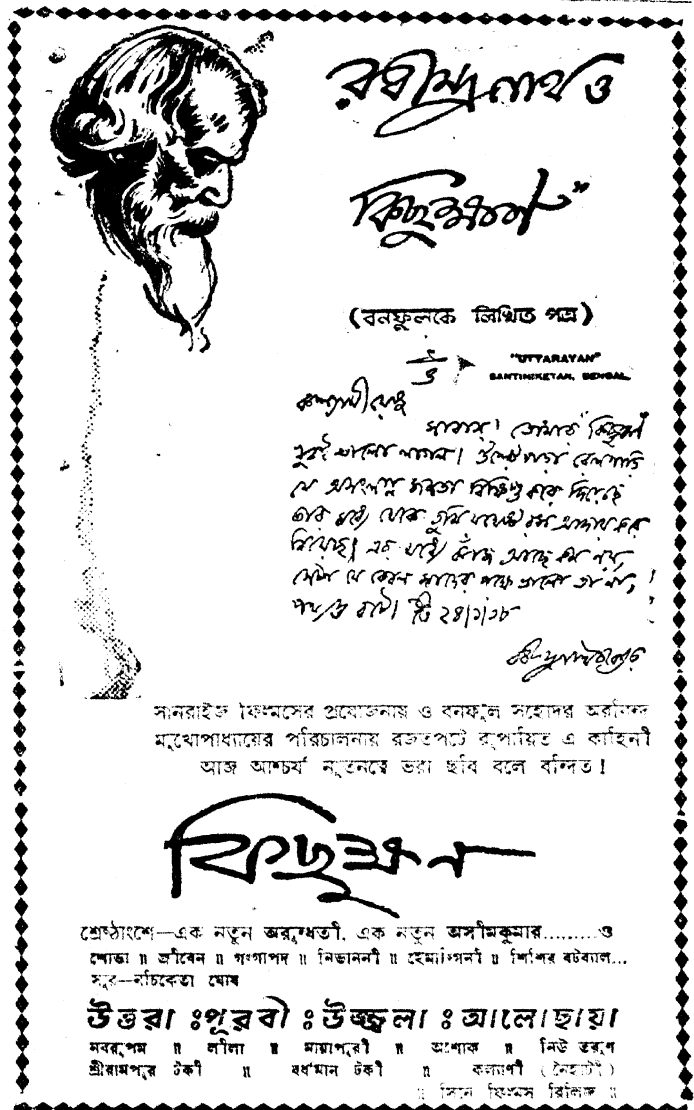 রবীন্দ্রনাথ ও
কিছুক্ষণ"
(বনফুলকে লিখিত পত্র)
ওঁ
"UTTARAYAN"
SANTINIKETAN, BENGAL.
কল্যাণীয়েষু
সাবাস! তোমার কিছুক্ষণ
খুবই ভালো লাগল। উল্টেপড়া রেলগাড়ি
যে অসংলগ্ন জনতা বিক্ষিপ্ত করে দিয়েছে
তার মধ্যে থেকে তুমি যথেষ্ট রস আদায় করে
নিয়েছ। এর মধ্যে ঝাঁজ আছে কম নয়,
সেটা যে কেবল স্বাদের পক্ষে ভালো তা নয়,
পথ্যও বটে। ইতি
রবীন্দ্রনাথ ঠাকুর
সানরাইজ ফিল্মসের প্রযোজনায় ও বনফুল সহোদর অরবিন্দ
মুখোপাধ্যায়ের পরিচালনায় রজতপটে রূপায়িত এ কাহিনী
আজ আশ্চর্য নূতনত্বে ভরা ছবি বলে বন্দিত!
কিছুক্ষণ
শ্রেষ্ঠাংশে—এক নতুন অরুন্ধতী, এক নতুন অসীমকুমার.........ও
শোভা ॥ জীবেন ॥ গংগাপদ ॥ নিভাননী ॥ হেমাংগিনী ॥ শিশির বটব্যাল...
সুর—নচিকেতা ঘোষ
উত্তরা : পূরবী : উজ্জ্বলা : আলোছায়া
নবরূপম ॥ লীলা ॥ মায়াপুরী ॥ অশোক ॥ নিউ তরুণ
শ্রীরামপুর টকী ॥ বর্ধমান টকী ॥ কল্যাণী (নৈহাটী)
॥ সিনে ফিল্মস রিলিজ ॥